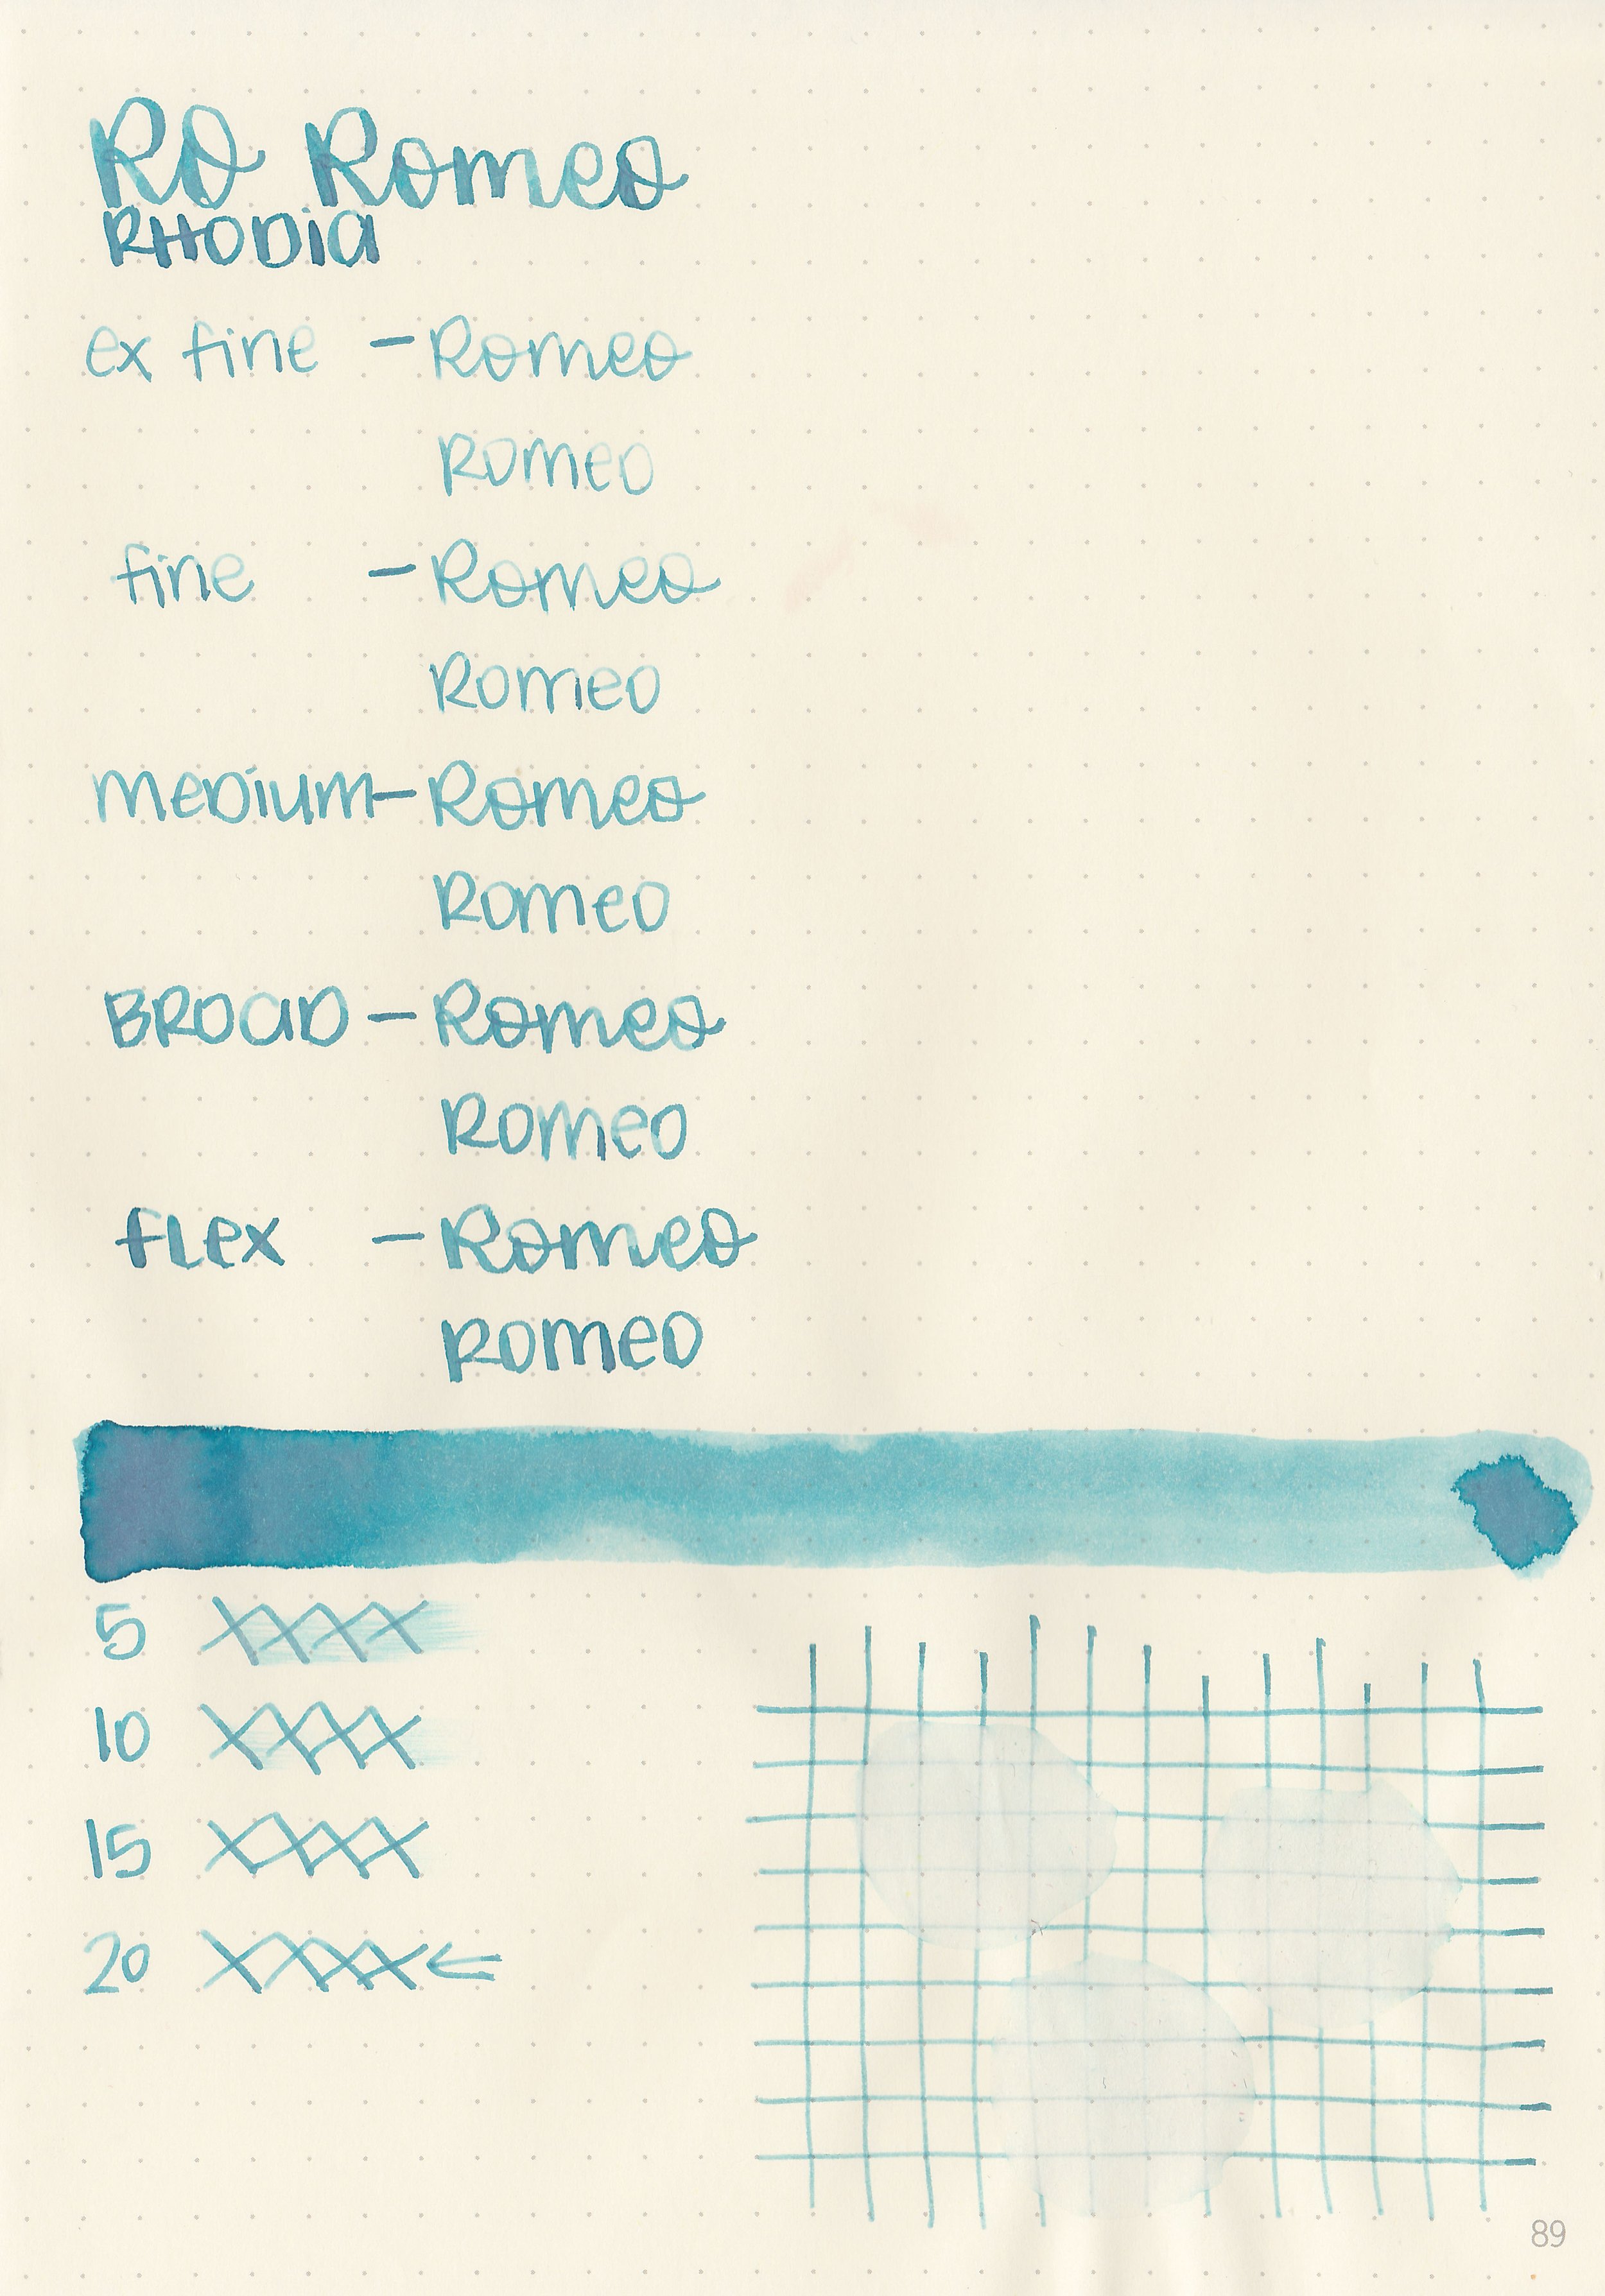 RO Romeo
RHODia
ex fine - Romeo
Romeo
fine - Romeo
Romeo
meDium - Romeo
Romeo
BROaD - Romeo
Romeo
fLex - Romeo
Romeo
5 XXXX
10 XXXX
15 XXXX
20 XXXX ←
89